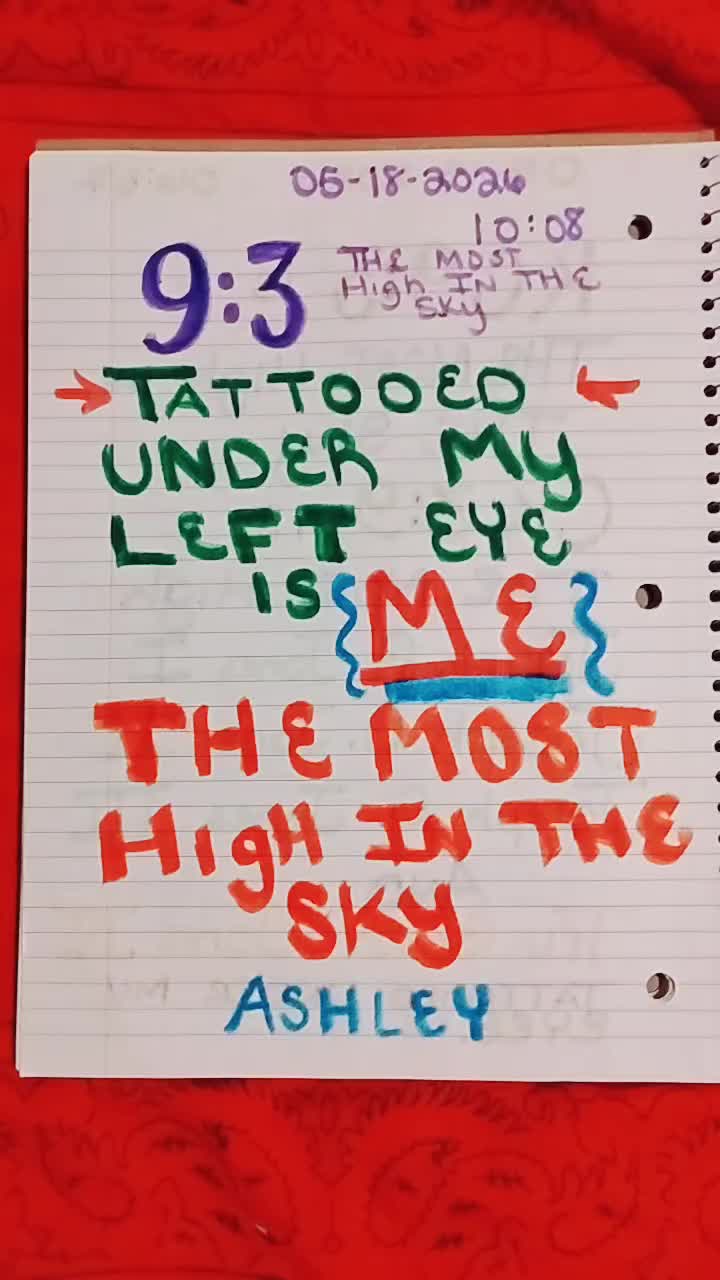 05-18-2026
10:08
9:3
THE MOST
High IN THE
SKY
TATTOOED
UNDER MY
LEFT EYE
IS {ME}
THE MOST
HigH IN THE
SKY
ASHLEY